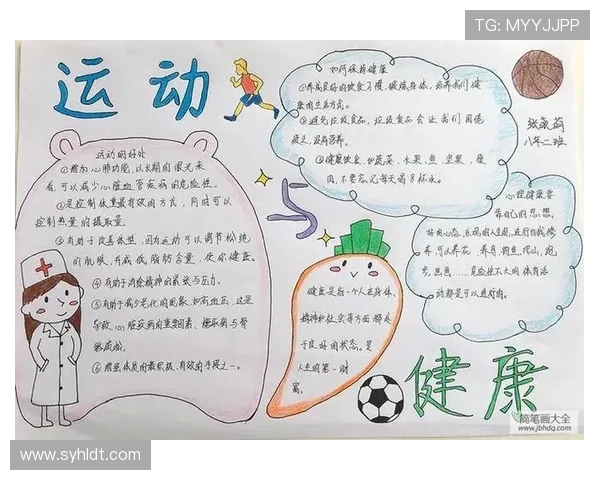 TG: MYYJJPP
运动
与
健康
运动的好处
①增加心肺功能,以长期的眼光来
看,可以减少心脏血管疾病的危险性。
②是控制体重最有效的方式,同时可以
控制热量的摄取量。
③有助于改善体型,因为运动可以调节松弛
的肌肤,并减低脂肪含量,使你健康。
④有助于消除精神的紧张与压力。
⑤有助于减少老化的因素,如高血压,这是
导致心脏疾病的重要因素、糖尿病与骨
骼疏松。
⑥增强体质的最积极,有效的手段之一。
如何保持健康
①养成良好的饮食习惯,锻炼身体,培养我们健
康的生活方式。
②避免垃圾食品,垃圾食品会让我们困倦
疲乏,没有营养。
③健康饮食,如蔬菜、水果、鱼、坚果、瘦
肉,不要忘记每天喝8杯水。
八年二班
心理健康要
靠自己的思想,
好的心态,乐观的人生观,进行自我修
养,可以养花、养鸟、钓鱼、爬山、跑
步、
危险性不大的体育活
动都是可以进行的。
健康是指一个人在身体、
精神和社会等方面都处
于良好的状态。是
人生的第一财
富。
简笔画大全
www.jbhdq.com
www.syhldt.com